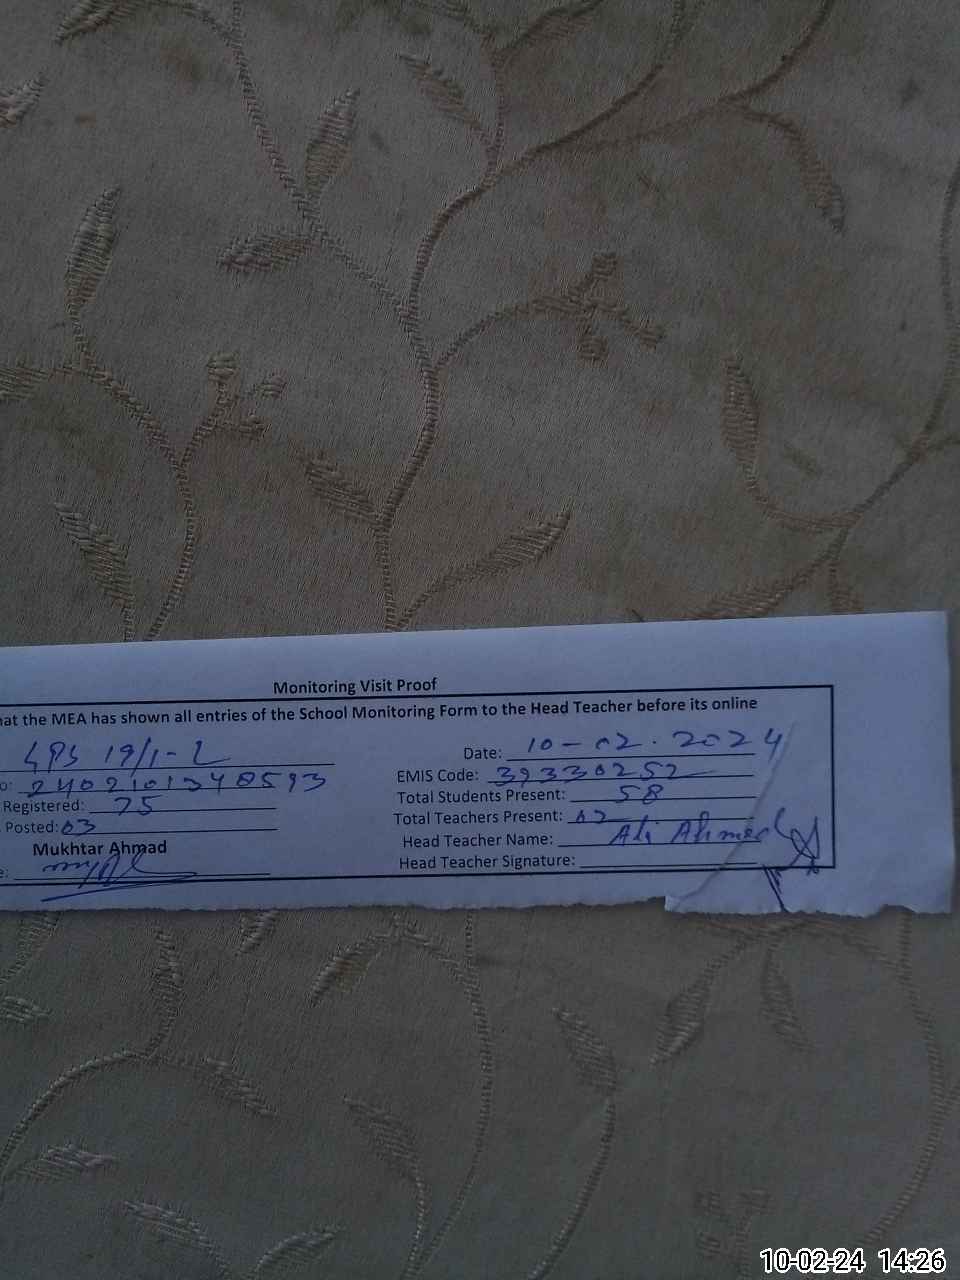 Monitoring Visit Proof
hat the MEA has shown all entries of the School Monitoring Form to the Head Teacher before its online
GPS 19/1-L Date: 10-02.2024
o: 2402101340593 EMIS Code: 39330252
Registered: 75 Total Students Present: 58
Posted: 03 Total Teachers Present: 02
Mukhtar Ahmad Head Teacher Name: Ali Ahmed
e: Head Teacher Signature:
10-02-24 14:26